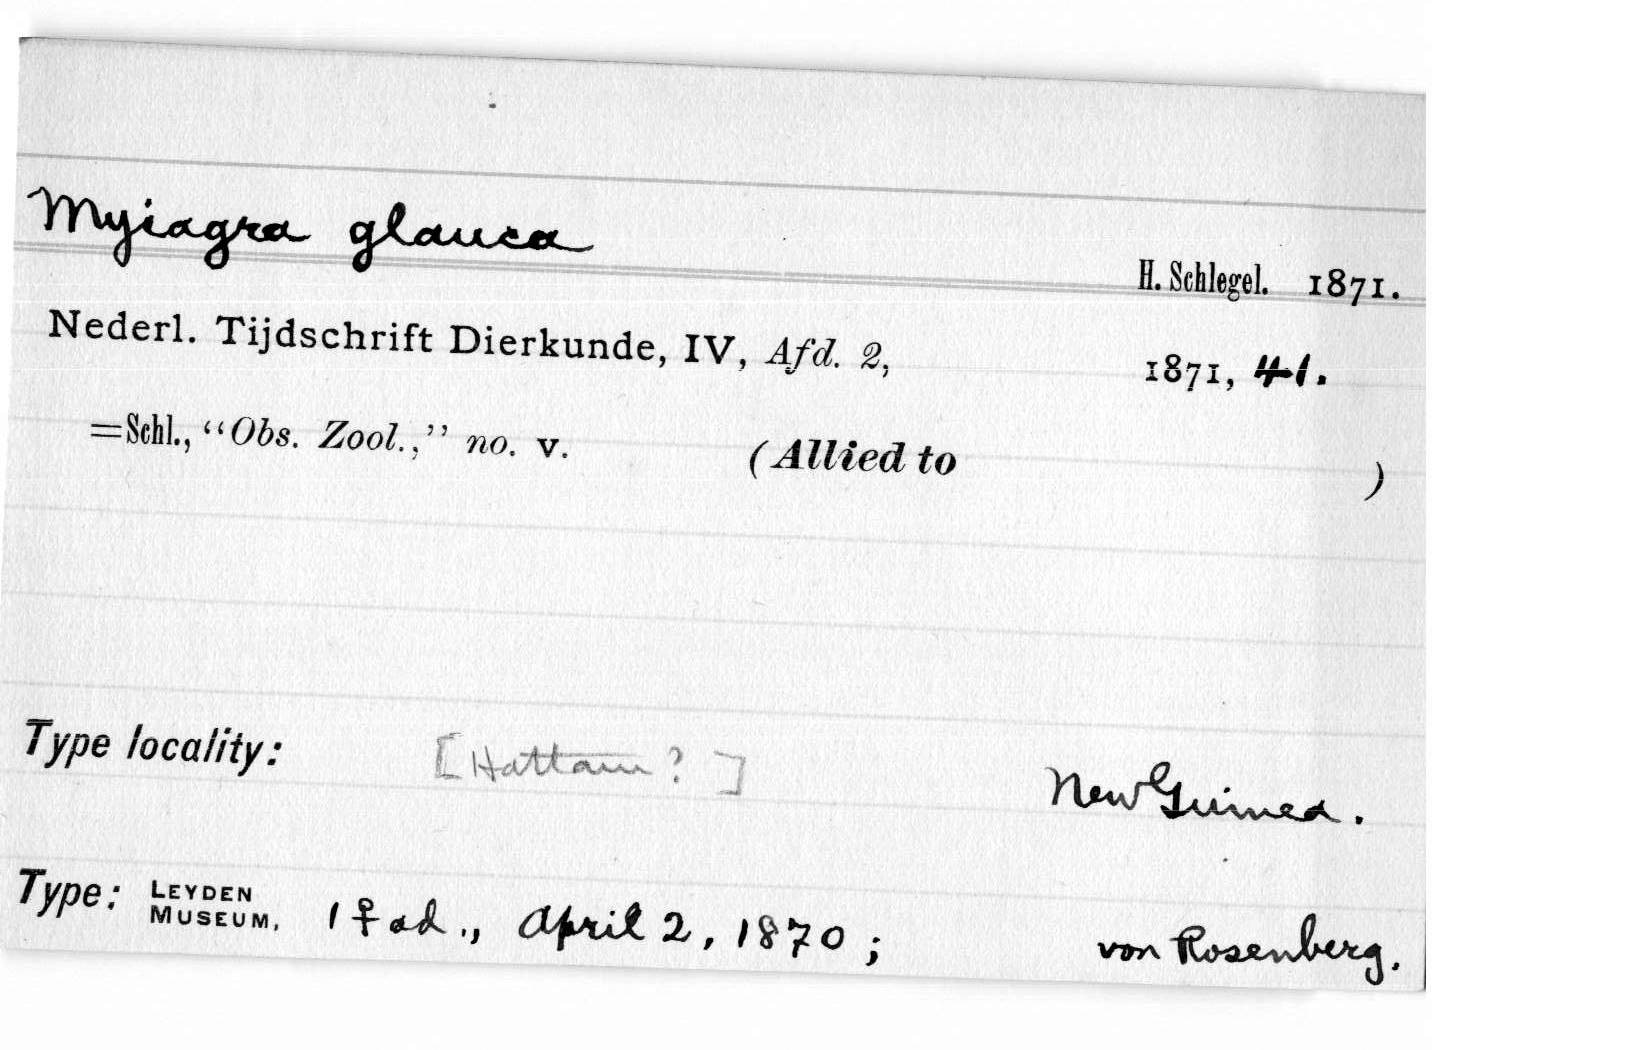 Myiagra glauca
H. Schlegel. 1871.
Nederl. Tijdschrift Dierkunde, IV, Afd. 2, 1871, 41.
=Schl., “Obs. Zool.,” no. v. (Allied to )
Type locality: [Hattam?] New Guinea.
Type: LEYDEN MUSEUM, 1 ♀ ad., April 2, 1870; von Rosenberg.